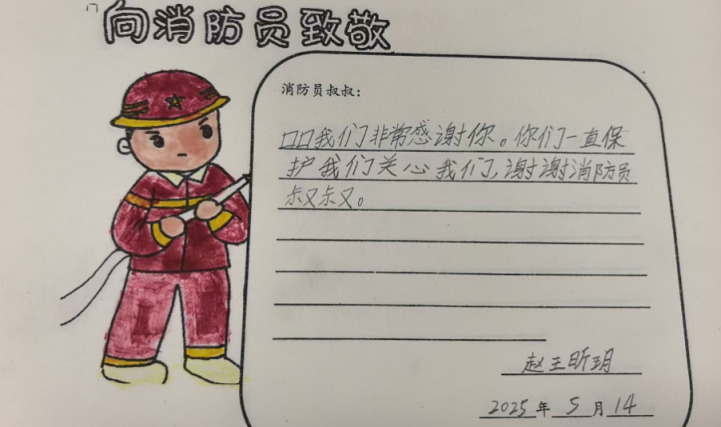 向消防员致敬
消防员叔叔：
口口我们非常感谢你。你们一直保
护我们关心我们，谢谢消防员
叔叔。
赵王昕玥
2025年5月14